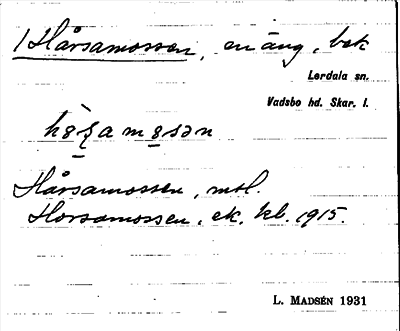 1 Hårsamossen, en äng, bek
Lerdala sn.
Vadsbo hd. Skar. l.
Hårsamossen, msl.
Horsamossen, ek. kb. 1915.
L. MADSÉN 1931